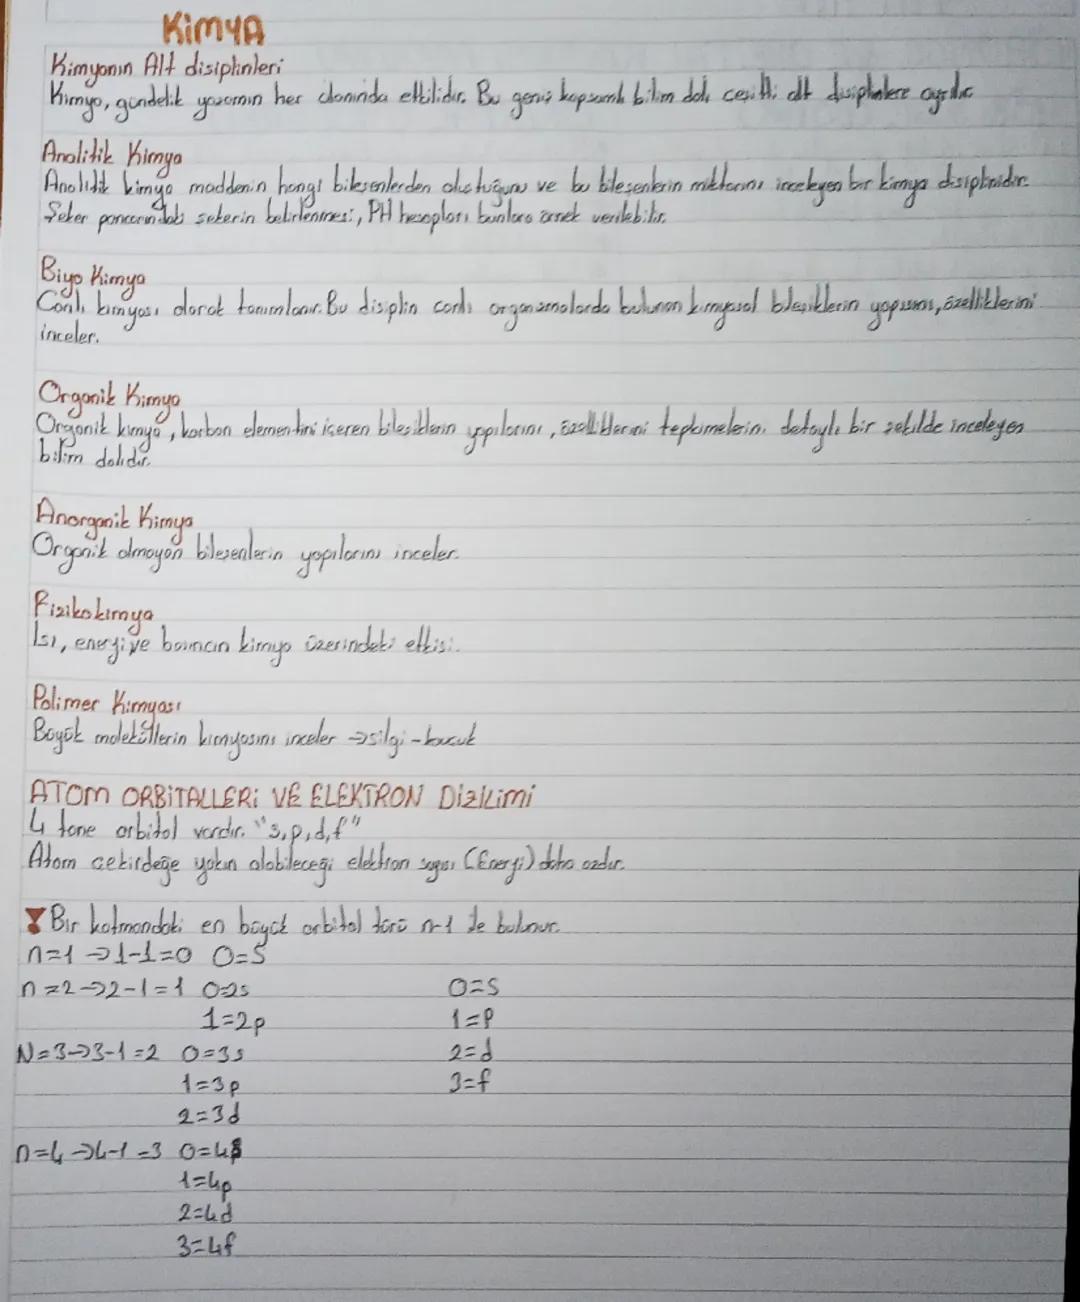 KimyA
Kimyanın Alt disiplinleri
Kimya, gündelik yaşamın her alanında etkilidir. Bu geniş kapsamlı bilim dalı çeşitli alt disiplinlere ayrılır
Analitik Kimya
Analitik kimya maddenin hangi bileşenlerden oluştuğunu ve bu bileşenlerin miktarını inceleyen bir kimya disiplinidir.
Şeker pancarındaki şekerin belirlenmesi, PH hesapları bunlara örnek verilebilir.
Biyo Kimya
Canlı kimyası olarak tanımlanır. Bu disiplin canlı organizmalarda bulunan kimyasal bileşiklerin yapısını, özelliklerini
inceler.
Organik Kimya
Organik kimya, karbon elementini içeren bileşiklerin yapılarını, özelliklerini tepkimelerini detaylı bir şekilde inceleyen
bilim dalıdır.
Anorganik Kimya
Organik olmayan bileşenlerin yapılarını inceler.
Fizikokimya
Isı, enerji ve basıncın kimya üzerindeki etkisi.
Polimer Kimyası
Büyük moleküllerin kimyasını inceler →silgi-kauçuk
ATOM ORBİTALLERİ VE ELEKTRON DİZİLİMİ
4 tane orbital vardır. "s,p,d,f"
Atom çekirdeğe yakın alabileceği elektron sayısı (Enerji) daha azdır.
Bir katmandaki en büyük orbital türü n-1 de bulunur.
n=1 →1-1=0 0=S
n=2→2-1=1 0=2s
1=2p
N=3→3-1=2 0=3s
1=3p
2=3d
n=4→4-1=3 0=4s
1=4p
2=4d
3=4f
0=S
1=P
2=d
3=f